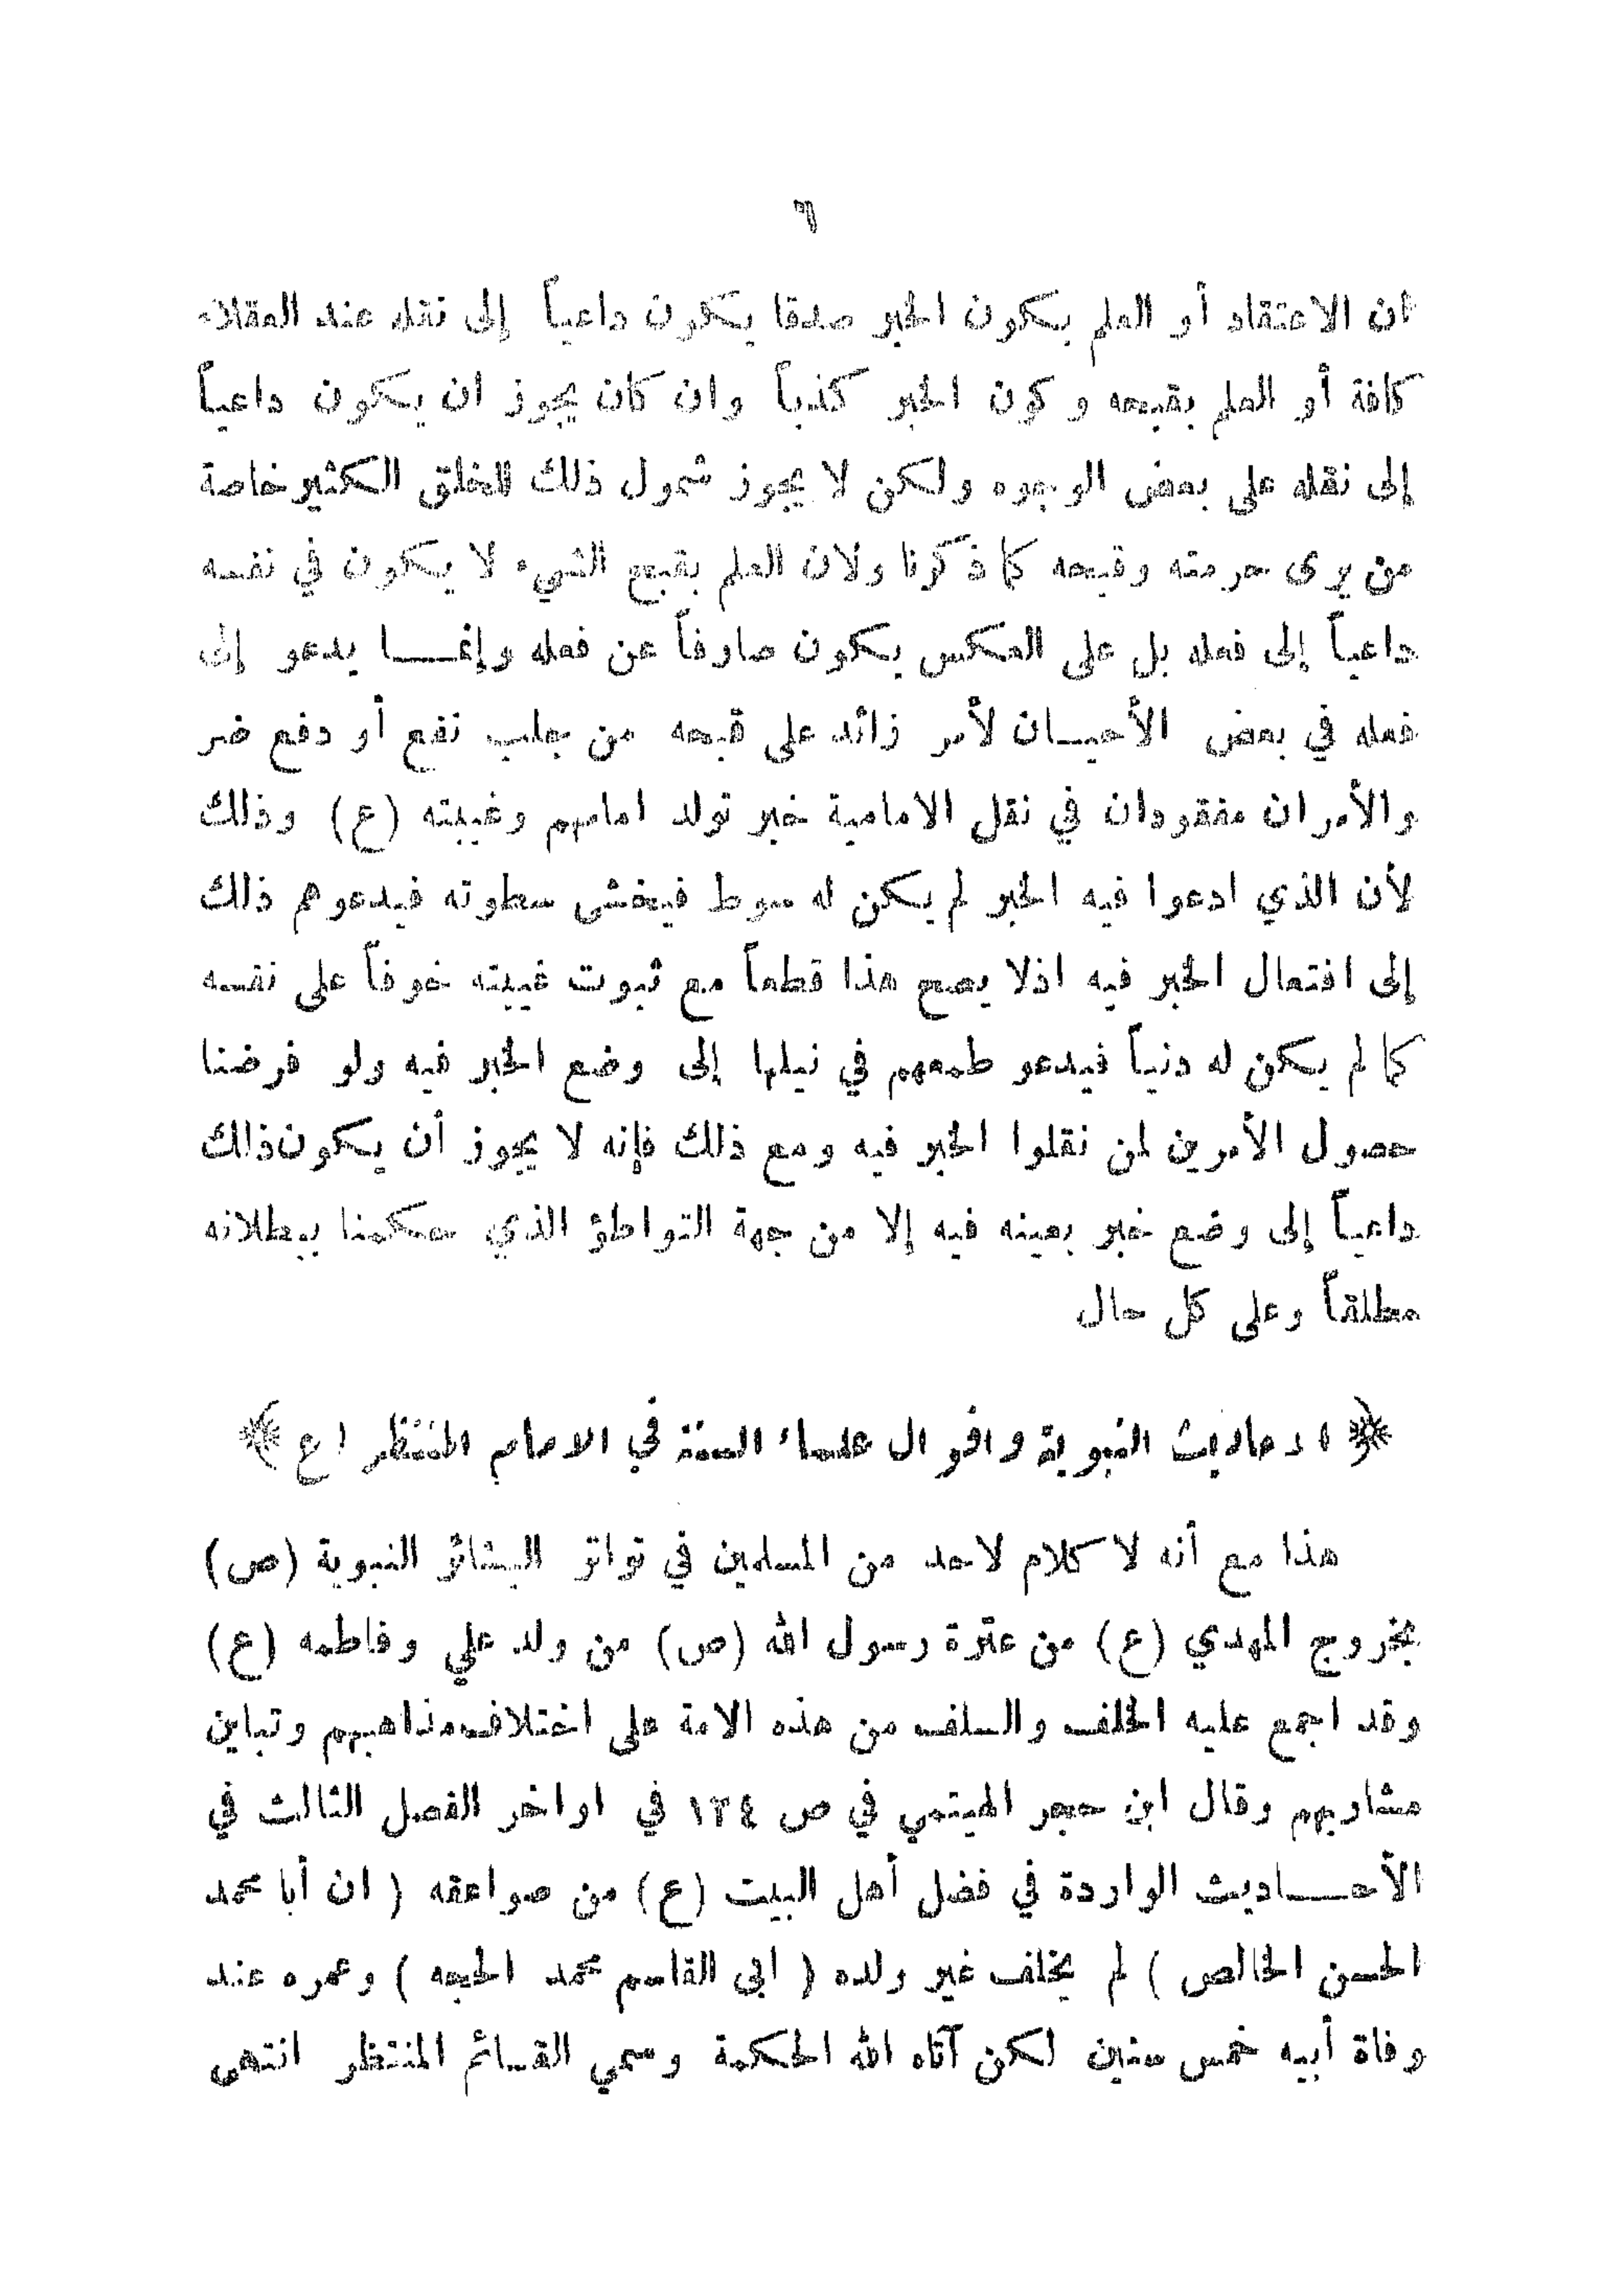 ٦
ان الاعتقاد أو العلم بكون الخبر صدقا يكون داعياً إلى نقله عند العقلاء
كافة أو العلم بقبحه وكون الخبر كذباً وان كان يجوز ان يكون داعياً
إلى نقله على بعض الوجوه ولكن لا يجوز شمول ذلك للخلق الكثير خاصة
من يرى حرمته وقبحه كما ذكرنا ولان العلم بقبح الشيء لا يكون في نفسه
داعياً إلى فعله بل على العكس يكون صارفاً عن فعله وإنمـا يدعو إلى
فعله في بعض الأحيـان لأمر زائد على قبحه من جلب نفع أو دفع ضر
والأمران مفقودان في نقل الامامية خبر تولد امامهم وغيبته (ع) وذلك
لأن الذي ادعوا فيه الخبر لم يكن له سوط فيخشى سطوته فيدعوهم ذلك
إلى افتعال الخبر فيه اذلا يصح هذا قطعاً مع ثبوت غيبته خوفاً على نفسه
كما لم يكن له دنياً فيدعو طمعهم في نيلها إلى وضع الخبر فيه ولو فرضنا
حصول الأمرين لمن نقلوا الخبر فيه ومع ذلك فإنه لا يجوز أن يكون ذلك
داعياً إلى وضع خبر بعينه فيه إلا من جهة التواطؤ الذي حكمنا ببطلانه
مطلقاً وعلى كل حال
﴿ الاحاديث النبوية واقوال علماء السنة في الامام المنتظر (ع ﴾
هذا مع أنه لا كلام لاحد من المسلمين في تواتر البشائر النبوية (ص)
بخروج المهدي (ع) من عترة رسول الله (ص) من ولد علي وفاطمه (ع)
وقد اجمع عليه الخلف والسلف من هذه الامة على اختلاف مذاهبهم وتباين
مشاربهم وقال ابن حجر الهيتمي في ص ١٢٤ في اواخر الفصل الثالث في
الأحـاديث الواردة في فضل أهل البيت (ع) من صواعقه ( ان أبا محمد
الحسن الخالص ) لم يخلف غير ولده ( ابي القاسم محمد الحجه ) وعمره عند
وفاة أبيه خمس سنين لكن آتاه الله الحكمة وسمي القـائم المنتظر انتهى